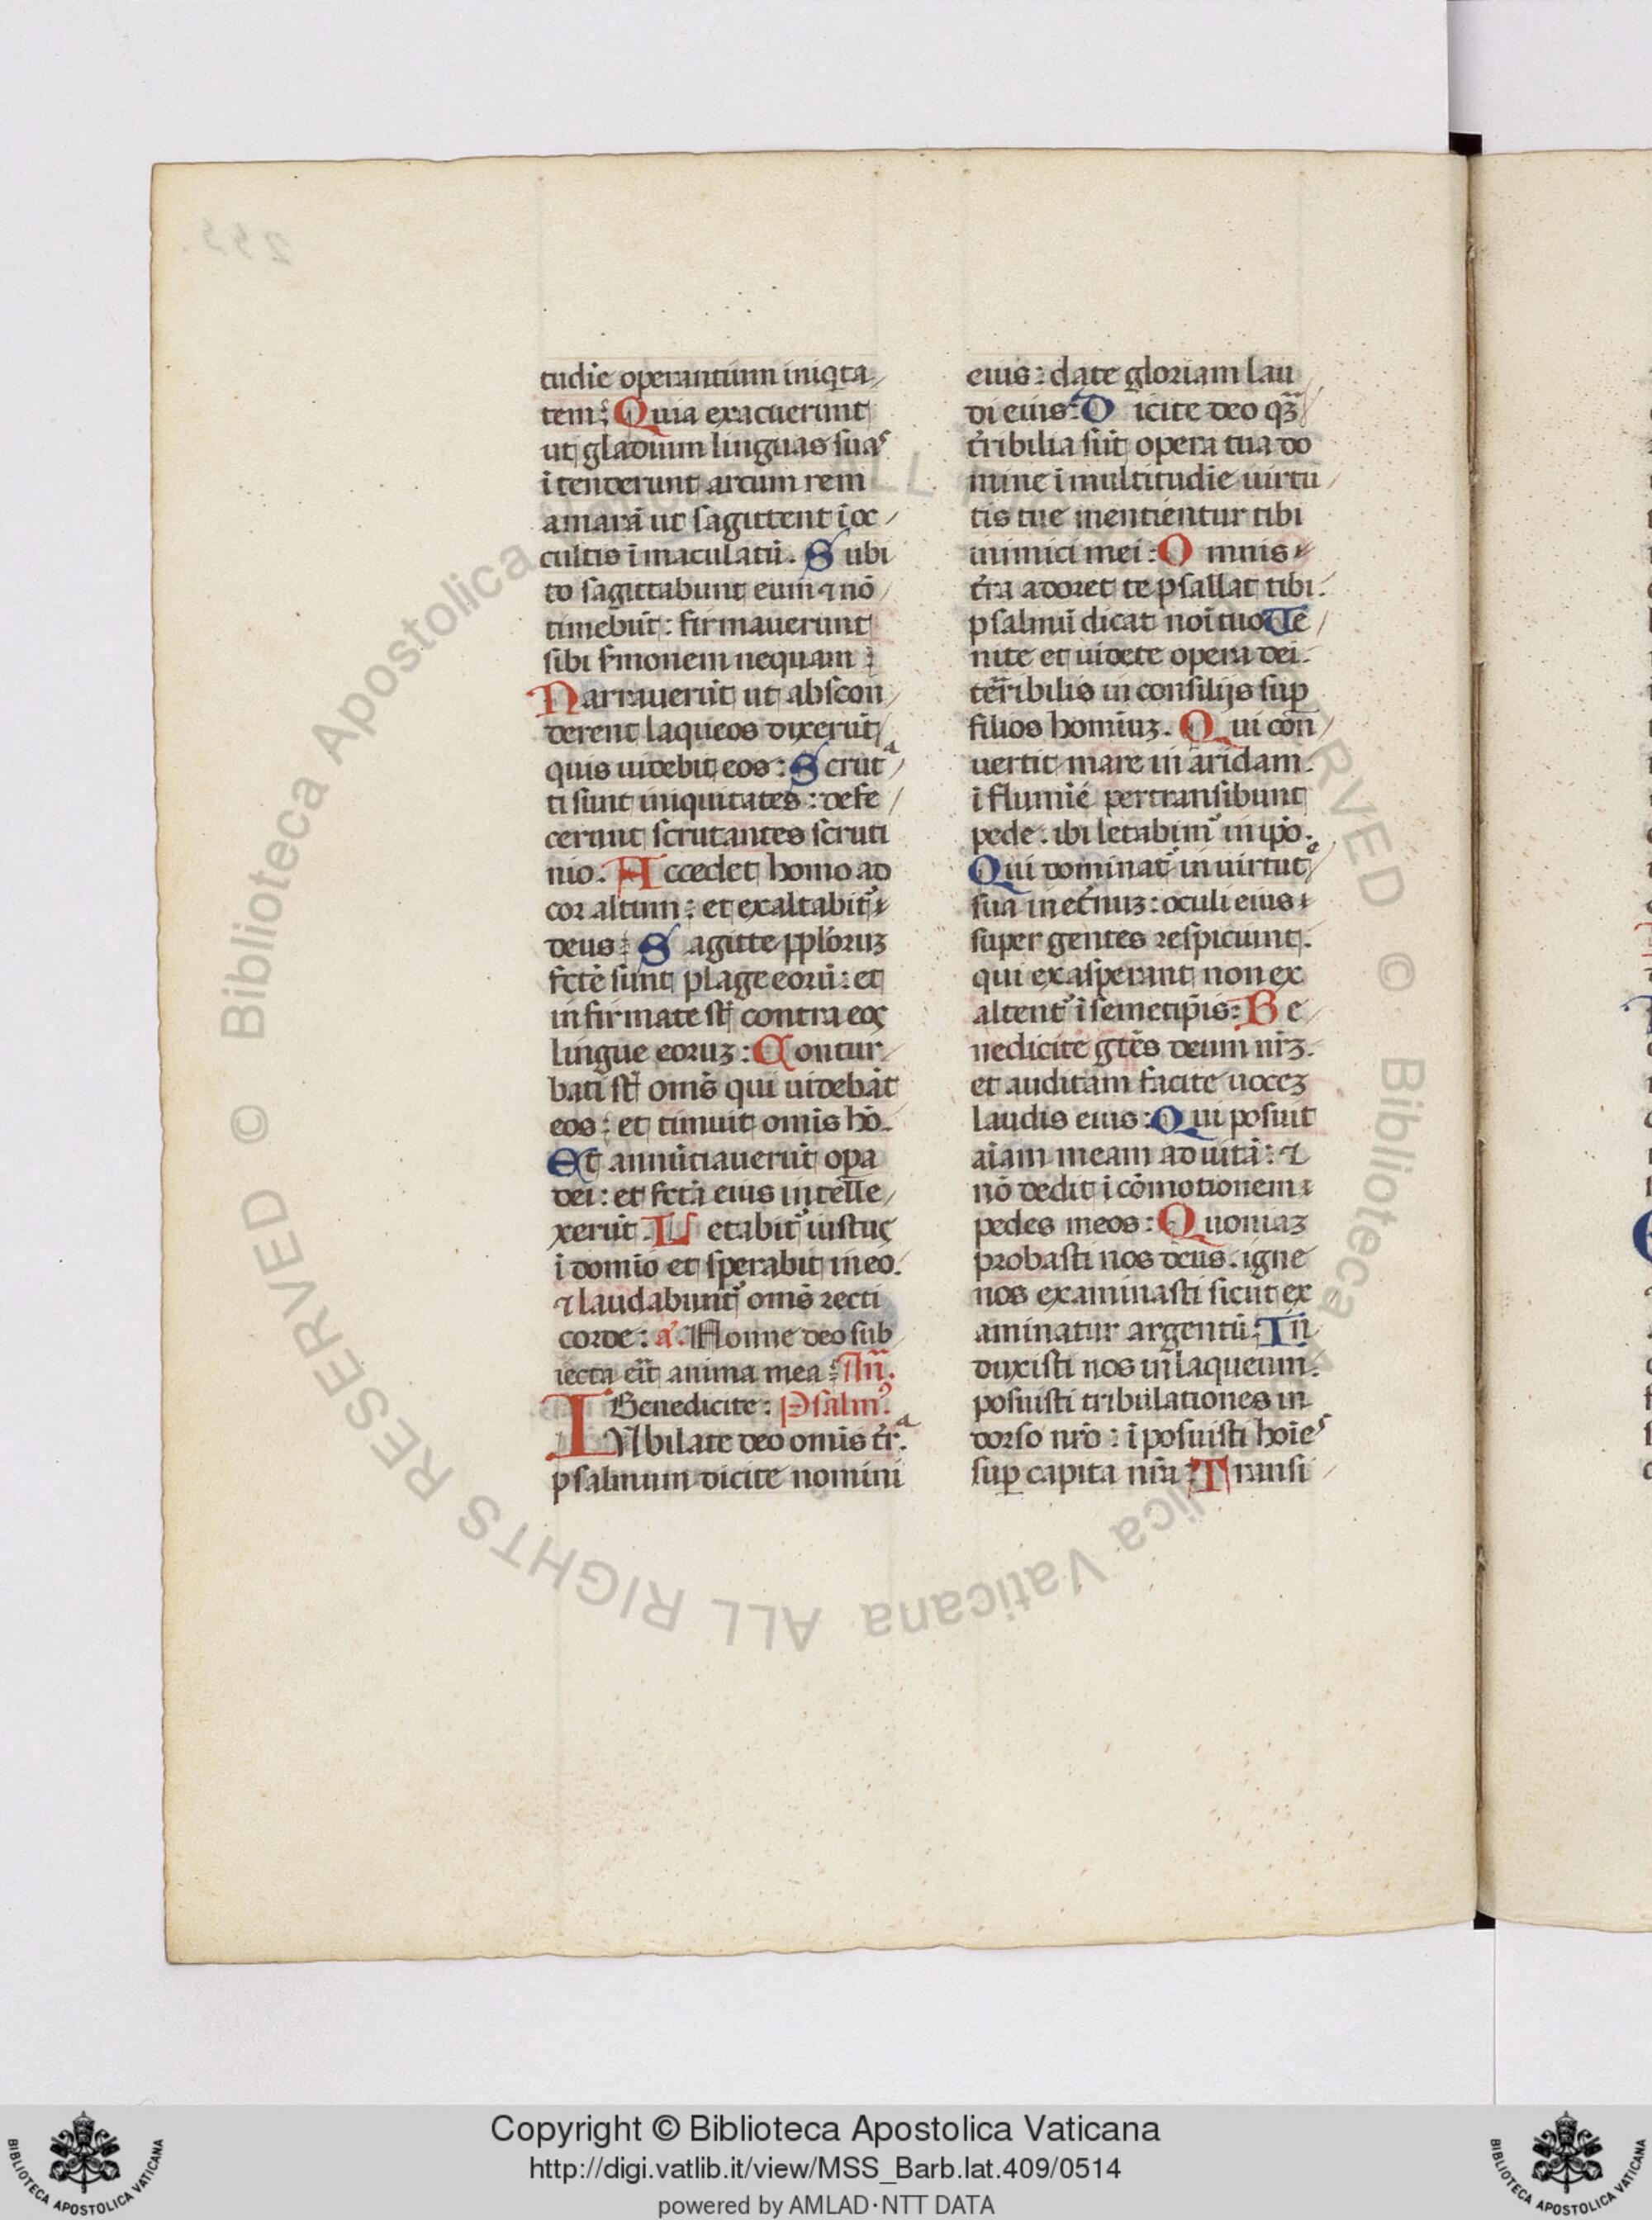 tudie operantium iniqta
tem: Quia exacuerunt
ut gladium linguas suas
ītenderunt arcum rem
amarā ut sagittent ī oc
cultis īmaculatū. Subi
to sagittabunt eum ⁊ nō
timebūt: firmauerunt
sibi s̄monem nequam:
Narrauerūt ut abscon
derent laqueos dixerūt
quis uidebit eos: Scrutᵃ
ti sunt iniquitates: defe
cerunt scrutantes scruti
nio. Accedet homo ad
cor altum: et exaltabit᷑
deus: Sagitte pploruꝫ
fctē sunt plage eorū: et
infirmate st̄ contra eos
lingue eoruꝫ: Contur
bati st̄ om̄s qui uidebāt
eos: et timuit omīs hō.
Et annūtiauerūt oꝑa
dei: et fctā eius intelle
xerūt. Letabit᷑ iustus
ī domīo et sperabit in eo.
⁊ laudabunt᷑ om̄s recti
corde: a᷑. Nonne deo sub
iecta eīt anima mea: An̄.
Benedicite: Psalmꝰ.
IVbilate deo omīs t̄rᵃ.
psalmum dicite nomini
eius: date gloriam lau
di eius: Dicite deo qꝫ̄
t̄ribilia sūt opera tua do
mine ī multitudīe uirtu
tis tue mentientur tibi
inimici mei: Omnis
t̄ra adoret te psallat tibi.
psalmū dicat noī tuo Ve
nite et uidete opera dei.
terribilis in consilijs suꝑ
filios homiuꝫ. Qui con
uertit mare in aridam.
ī flumīe pertransibunt
pede: ibi letabimꝰ in ip̄o.
Qui dominat᷑ in uirtutᵉ
sua in et̄nuꝫ: oculi eius
super gentes respiciunt.
qui exasperant non ex
altent᷑ ī semetip̄is: Be
nedicite gētes deum nr̄ꝫ.
et auditam facite uoceꝫ
laudis eius: Qui posuit
aīam meam ad uitā: ⁊
nō dedit ī cōmotionem
pedes meos: Quoniaꝫ
probasti nos deus. igne
nos examinasti sicut ex
aminatur argentū: In
duxisti nos in laqueum.
posuisti tribulationes in
dorso nr̄o: īposuisti hoīes
suꝑ capita nr̄a: Transi
© Biblioteca Apostolica Vaticana ALL RIGHTS RESERVED
Copyright © Biblioteca Apostolica Vaticana
http://digi.vatlib.it/view/MSS_Barb.lat.409/0514
powered by AMLAD·NTT DATA
BIBLIOTECA APOSTOLICA VATICANA
BIBLIOTECA APOSTOLICA VATICANA